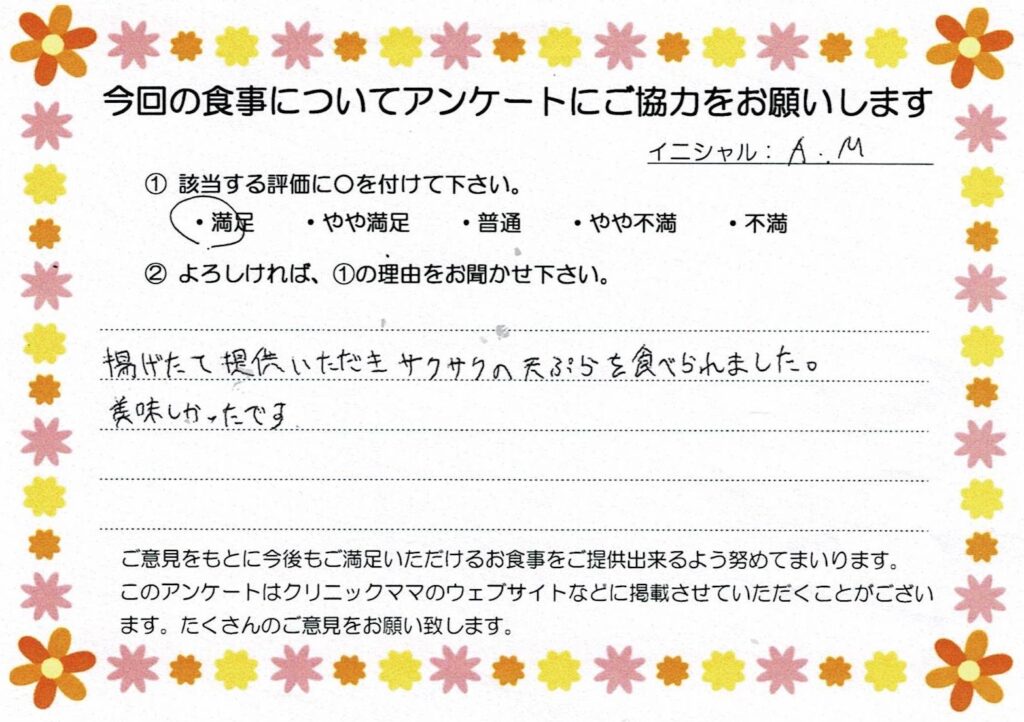 今回の食事についてアンケートにご協力をお願いします
イニシャル: A.M
① 該当する評価に〇を付けて下さい。
・満足 ・やや満足 ・普通 ・やや不満 ・不満
② よろしければ、①の理由をお聞かせ下さい。
揚げたて提供いただきサクサクの天ぷらを食べられました。
美味しかったです
ご意見をもとに今後もご満足いただけるお食事をご提供出来るよう努めてまいります。
このアンケートはクリニックママのウェブサイトなどに掲載させていただくことがござい
ます。たくさんのご意見をお願い致します。